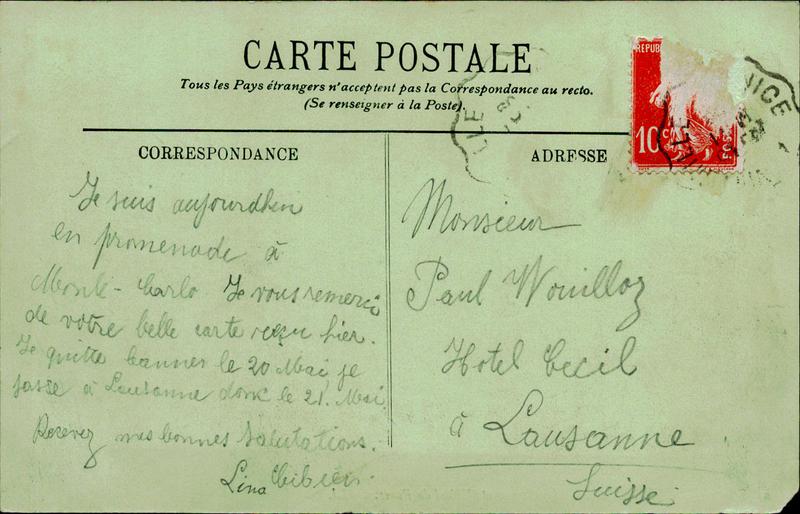 CARTE POSTALE
Tous les Pays étrangers n'acceptent pas la Correspondance au recto.
(Se renseigner à la Poste).
CORRESPONDANCE
Je suis aujourdhui
en promenade à
Monte-Carlo. Je vous remerci
de votre belle carte reçu hier.
Je quitte Cannes le 20 Mai je
passe à Lausanne donc le 21. Mai
Recevez mes bonnes Salutations.
Lina
ADRESSE
Monsieur
Paul Wouilloz
Hotel Cecil
à Lausanne
Suisse.
REPUB
10 c
POS
NICE